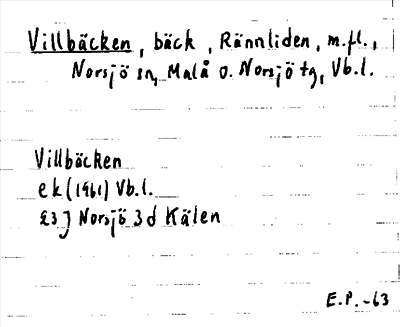 Villbäcken, bäck, Rännliden, m.fl.,
Norsjö sn, Malå o. Norsjö tg, Vb.l.
Villbäcken
ek (1961) Vb.l.
23 J Norsjö 3 d Kälen
E.P. -63